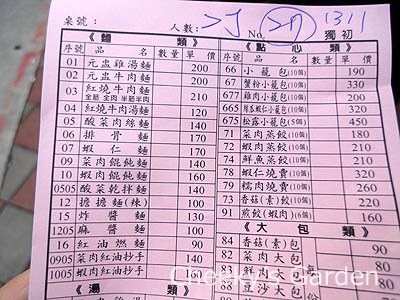 桌號： 人數： No. 1311 獨初
《麵 類》
序號 品 名 數量 單價
01 元盅雞湯麵 200
02 元盅牛肉麵 200
03 紅燒牛肉麵 全筋 全肉 半筋半肉 210
04 紅燒牛肉湯麵 120
05 酸菜肉絲麵 140
06 排骨麵 170
07 蝦仁麵 170
09 菜肉餛飩麵 140
10 蝦肉餛飩麵 160
0505 酸菜乾拌麵 140
12 擔擔麵(辣) 100
15 炸醬麵 130
1205 麻醬麵 100
16 紅油燃麵 90
0905 菜肉紅油抄手 140
1005 蝦肉紅油抄手 160
《湯 類》
《點 心 類》
序號 品 名 數量 單價
66 小籠包(10個) 190
67 蟹粉小籠包(10個) 330
677 雞肉小籠包(10個) 200
665 (10個) 320
675 松露小籠包(5個) 450
71 菜肉蒸餃(10個) 180
72 蝦肉蒸餃(10個) 210
74 鮮魚蒸餃(10個) 320
78 蝦仁燒賣(10個) 320
79 糯肉燒賣(10個) 260
73 香菇(素)餃(10個) 220
91 煎餃(蝦肉)(6個) 160
《大 包 類》
84 香菇(素)包 90
82 菜肉大包 80
83 鮮肉 80
88 豆沙大包
Cheers's Garden